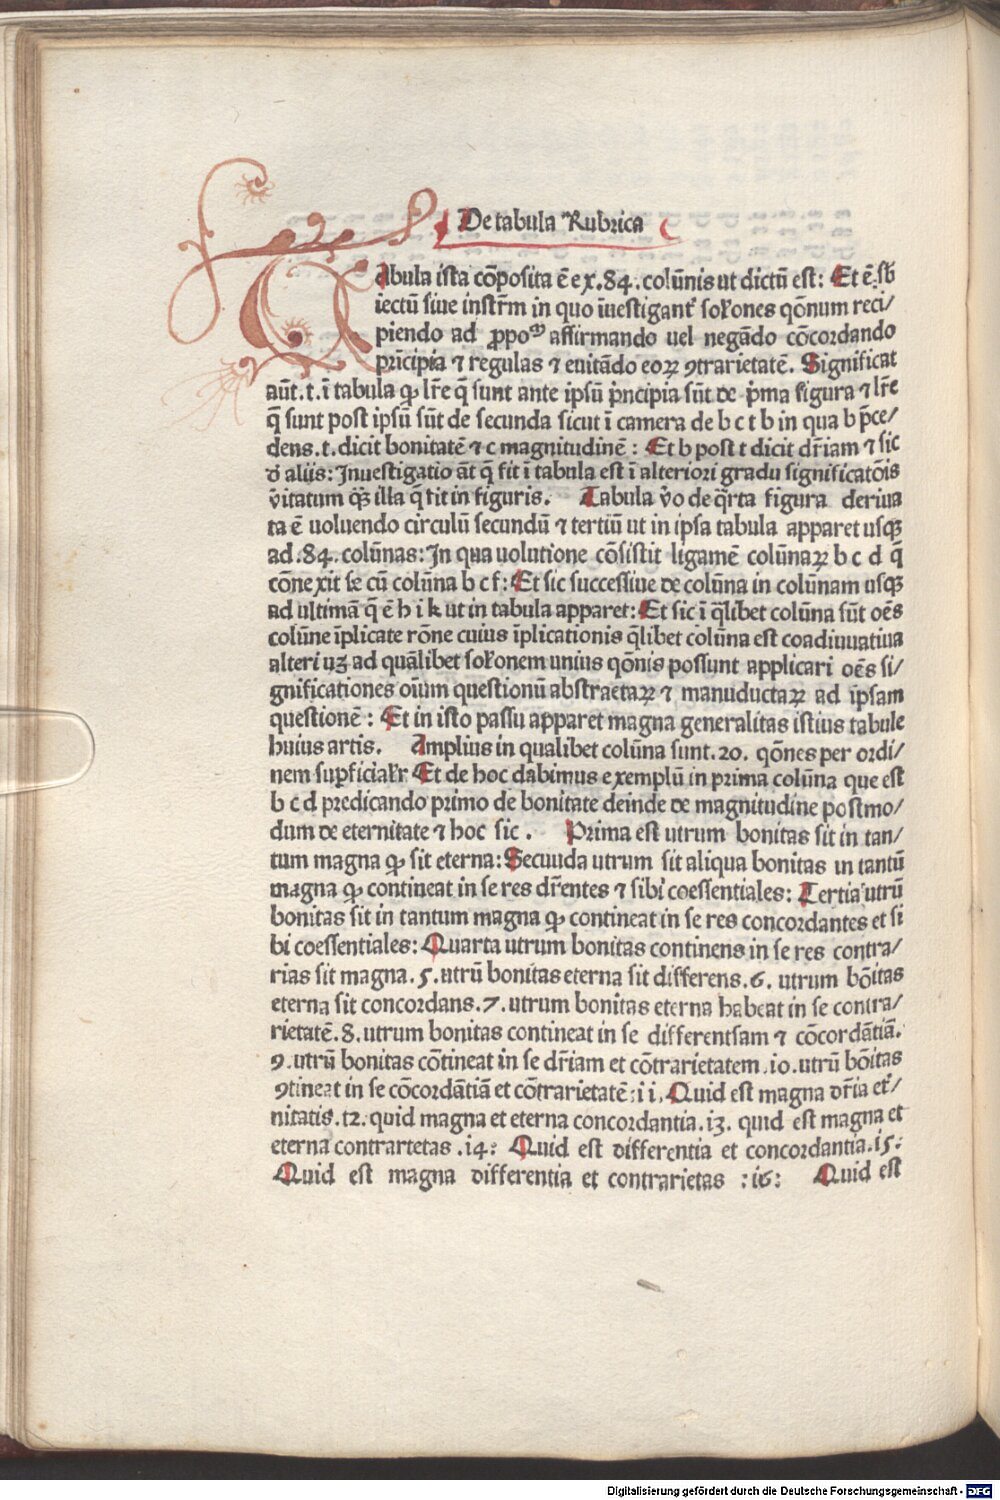 De tabula Rubrica
Tabula ista cōposita ē ex .84. colūnis ut dictū est: Et ē sb̄
iectū siue instr̄m in quo īuestigant᷑ sol̄ones qōnum reci/
piendo ad ꝓpoᵐ affirmando uel negādo cōcordando
prīcipia ⁊ regulas ⁊ euitādo eoꝝ ꝯtrarietatē. Significat
aūt .t. ī tabula ꝙ lr̄e q̄ sunt ante ipsū p̄ncipia sūt de p̄ma figura ⁊ lr̄e
q̄ sunt post ipsū sūt de secunda sicut ī camera de b c t b in qua b p̄ce/
dens .t. dicit bonitatē ⁊ c magnitudinē : Et b post t dicit dr̄iam ⁊ sic
d̄ aliis: Inuestigatio āt q̄ fit ī tabula est ī alteriori gradu significatōis
v̄itatum qꝫ illa q̄ fit in figuris. Tabula v̄o de q̄rta figura deriua
ta ē uoluendo circulū secundū ⁊ tertiū ut in ipsa tabula apparet usqꝫ
ad .84. colūnas: In qua uolutione cōsistit ligamē colūnaꝝ b c d q̄
cōnexit se cū colūna b c f: Et sic successiue de colūna in colūnam usqꝫ
ad ultimā q̄ ē h i k ut in tabula apparet: Et sic ī q̄libet colūna sūt oēs
colūne īplicate rōne cuius īplicationis q̄libet colūna est coadiuuatiua
alteri uꝫ ad quālibet sol̄onem unius qōnis possunt applicari oēs si/
gnificationes oīum questionū abstractaꝝ ⁊ manuductaꝝ ad īpsam
questionē : Et in isto passu apparet magna generalitas istius tabule
huius artis. Amplius in qualibet colūna sunt .20. qōnes per ordi/
nem suꝑficial̄r Et de hoc dabimus exemplū in prima colūna que est
b c d predicando primo de bonitate deinde de magnitudine postmo/
dum de eternitate ⁊ hoc sic . Prima est utrum bonitas sit in tan/
tum magna ꝙ sit eterna: Secuuda utrum sit aliqua bonitas in tantū
magna ꝙ contineat in se res dr̄entes ⁊ sibi coessentiales: Tertia utrū
bonitas sit in tantum magna ꝙ contineat in se res concordantes et si
bi coessentiales: Quarta utrum bonitas continens in se res contra/
rias sit magna. 5. utrū bonitas eterna sit differens .6. utrum bōitas
eterna sit concordans .7. utrum bonitas eterna habeat in se contra/
rietatē. 8. utrum bonitas contineat in se differentsam ⁊ cōcordātiā.
9. utrū bonitas cōtineat in se dr̄iam et cōtrarietatem .io. utrū bōitas
ꝯtineat in se cōcordātiā et cōtrarietatē: ii. Quid est magna dr̄ia et̄/
nitatis .i2. quid magna et eterna concordantia .i3. quid est magna et
eterna contrartetas .i4: Quid est differentia et concordantia .i5:
Quid est magna differentia et contrarietas :i6: Quid est
Digitalisierung gefördert durch die Deutsche Forschungsgemeinschaft - DFG